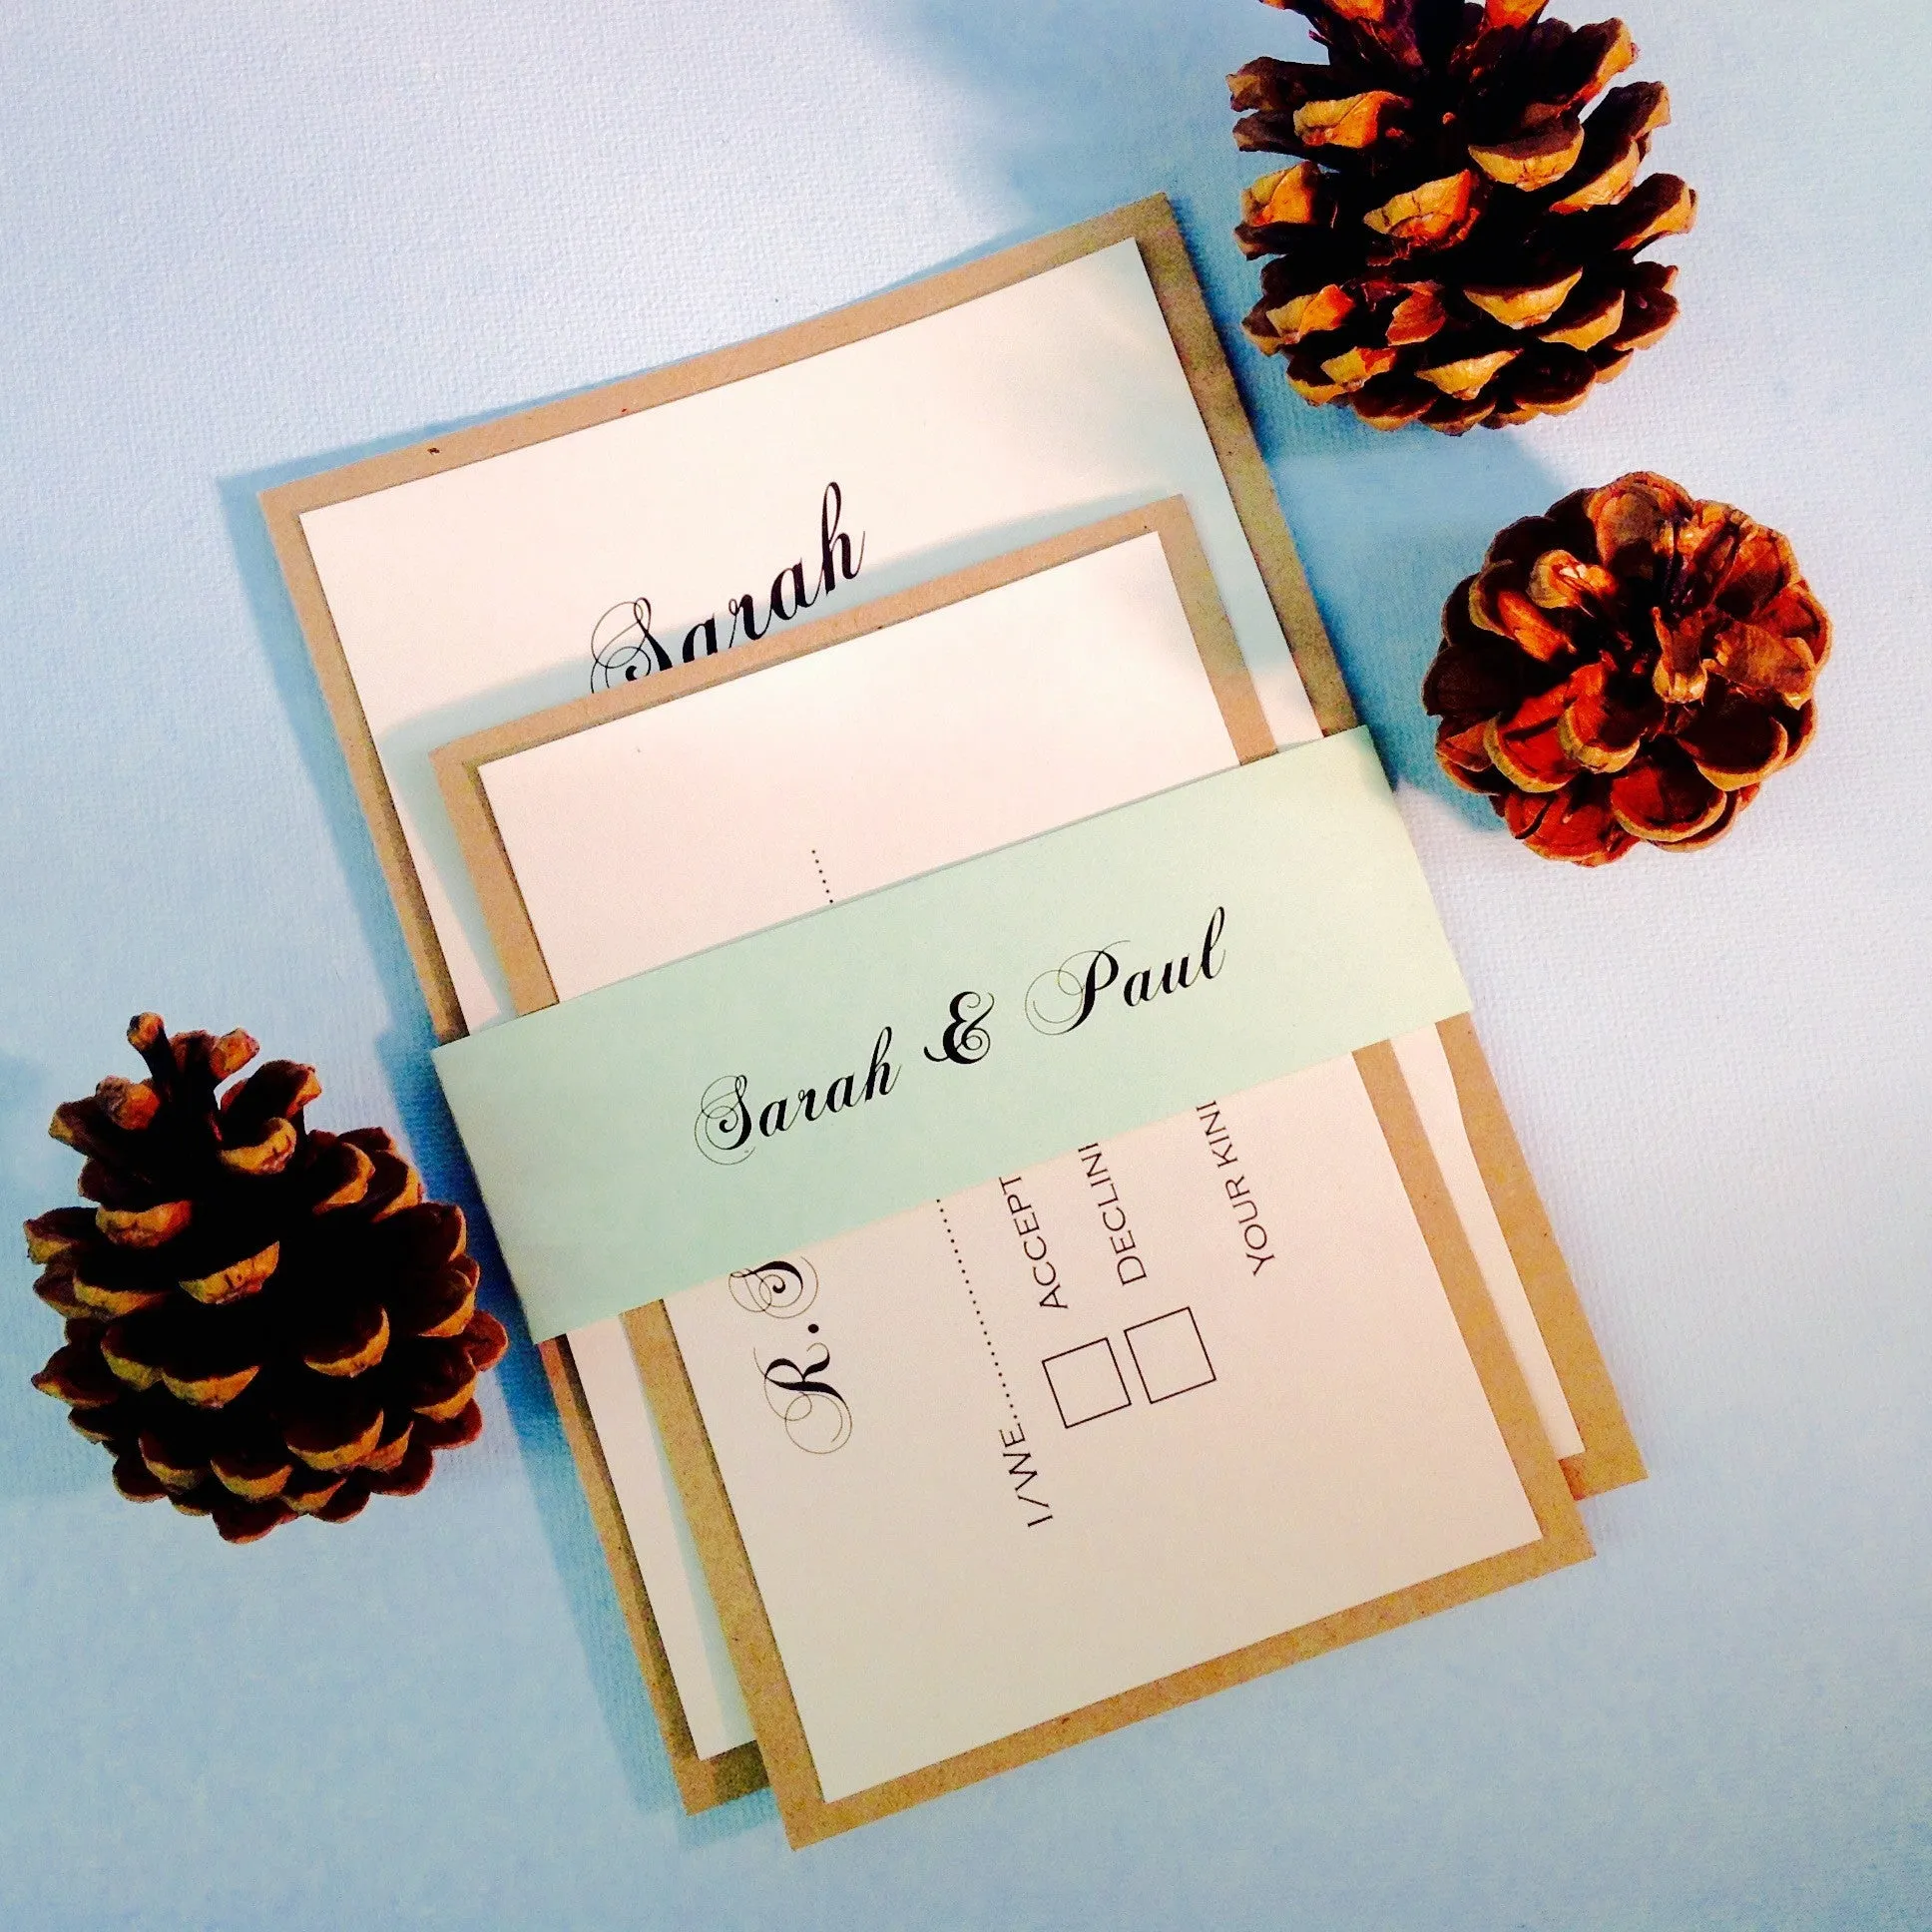 Sarah
Sarah & Paul
R.S
I/WE
ACCEPT
DECLINI
YOUR KINI